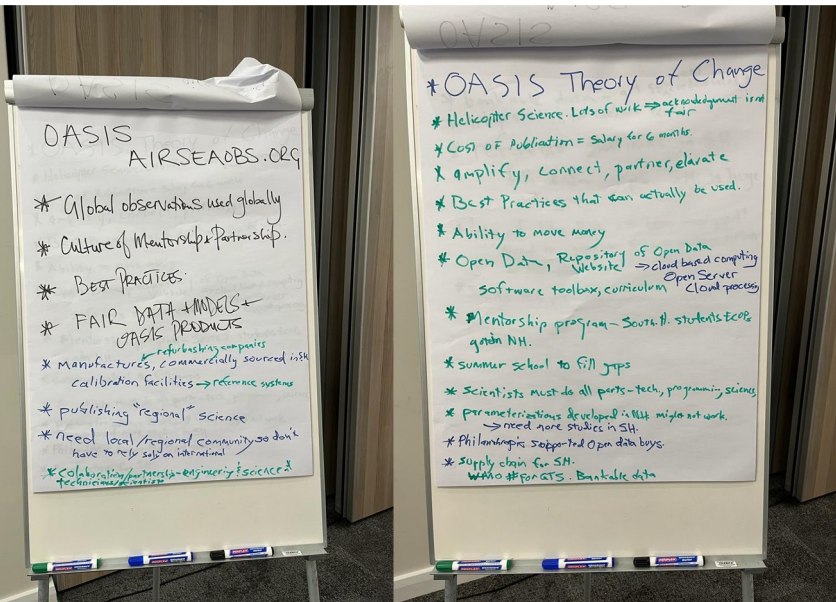 OASIS
AIRSEAOBS.ORG
* Global observations used globally
* Culture of Mentorship & Partnership.
* BEST PRACTICES.
* FAIR DATA + MODELS +
OASIS PRODUCTS
refurbashing companies
* Manufactures, commercially sourced in SH
calibration facilities → reference systems
* publishing "regional" science
* need local/regional community so don't
have to rely soly on international
* Colaboration/partnership - engineering & science &
technicians
OASIS
* OASIS Theory of Change
* Helicopter Science. Lots of work ⇒ acknowledgment isnt
fair
* Cost of Publication = Salary for 6 months.
* amplify, connect, partner, elavate
* Best Practices that can actually be used.
* Ability to move money
* Open Data, Repository of Open Data
Website → cloud based computing
Open Server
software toolbox, curriculum Cloud processing
* Mentorship program - South. H. students ECOPs
go to NH.
* summer school to fill gaps
* Scientists must do all parts - tech, programming, science,
* parameterizations developed in NH might not work.
→ need more studies in SH.
* Philanthropic supported Open data buys.
* Supply chain for SH.
WMO # for GTS. Bankable data